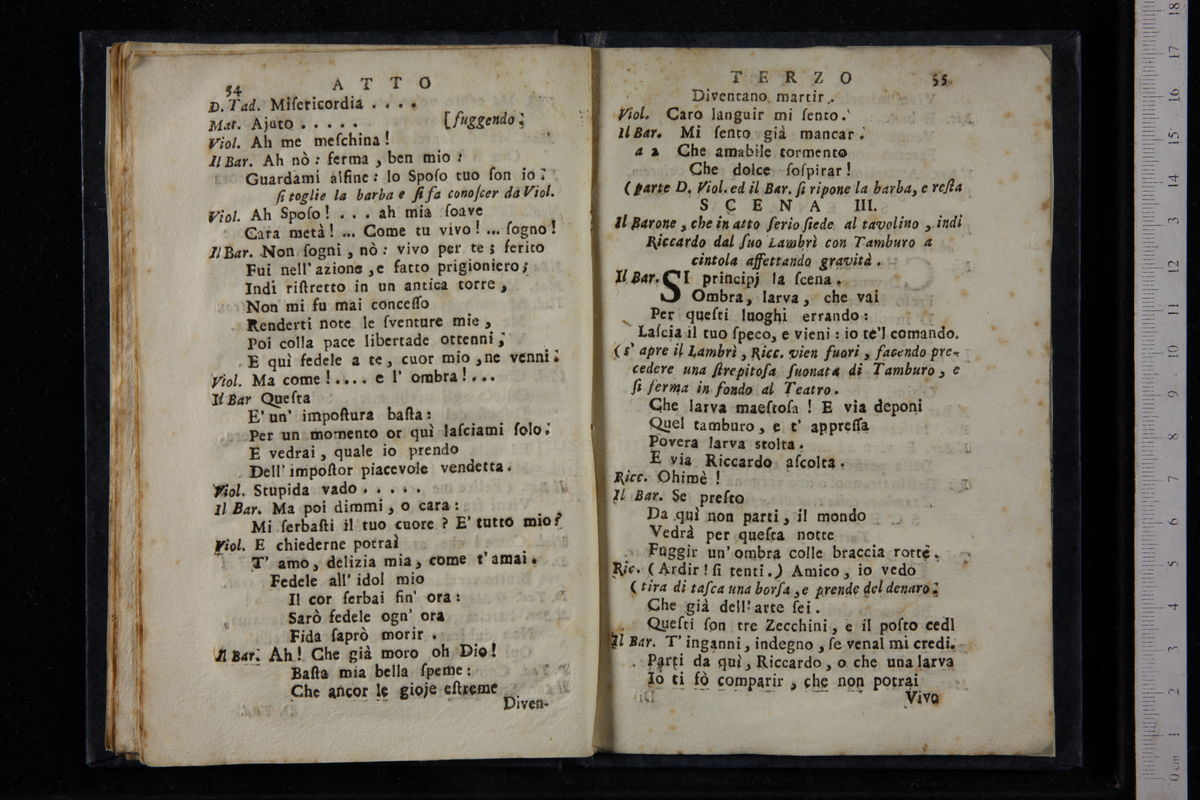 54 ATTO
D. Tad. Miſericordia . . . .
Mat. Ajuto . . . . . [fuggendo.
Viol. Ah me meſchina!
Il Bar. Ah nò: ferma, ben mio:
Guardami alfine: lo Spoſo tuo ſon io.
ſi toglie la barba e ſi fa conoſcer da Viol.
Viol. Ah Spoſo! . . . ah mia ſoave
Cara metà! ... Come tu vivo! ... ſogno!
Il Bar. Non ſogni, nò: vivo per te; ferito
Fui nell' azione, e fatto prigioniero;
Indi riſtretto in un antica torre,
Non mi fu mai conceſſo
Renderti note le ſventure mie,
Poi colla pace libertade ottenni,
E quì fedele a te, cuor mio, ne venni.
Viol. Ma come!.... e l' ombra!...
Il Bar Queſta
E' un' impoſtura baſta:
Per un momento or quì laſciami ſolo.
E vedrai, quale io prendo
Dell' impoſtor piacevole vendetta.
Viol. Stupida vado . . . . .
Il Bar. Ma poi dimmi, o cara:
Mi ſerbaſti il tuo cuore? E' tutto mio?
Viol. E chiederne potrai
T' amo, delizia mia, come t' amai.
Fedele all' idol mio
Il cor ſerbai fin' ora:
Sarò fedele ogn' ora
Fida ſaprò morir.
Il Bar. Ah! Che già moro oh Dio!
Baſta mia bella ſpeme:
Che ancor le gioje eſtreme
Diven-
TERZO 55
Diventano martir.
Viol. Caro languir mi ſento.
Il Bar. Mi ſento già mancar.
a 2 Che amabile tormento
Che dolce ſoſpirar!
(parte D. Viol. ed il Bar. ſi ripone la barba, e reſta
SCENA III.
Il Barone, che in atto ſerio ſiede al tavolino, indi
Riccardo dal ſuo Lambrì con Tamburo a
cintola affettando gravità.
Il Bar. SI principj la ſcena.
Ombra, larva, che vai
Per queſti luoghi errando:
Laſcia il tuo ſpeco, e vieni: io te'l comando.
(s' apre il Lambrì, Ricc. vien fuori, facendo pre-
cedere una ſtrepitoſa ſuonata di Tamburo, e
ſi ferma in fondo al Teatro.
Che larva maeſtoſa! E via deponi
Quel tamburo, e t' appreſſa
Povera larva stolta.
E via Riccardo aſcolta.
Ricc. Ohimè!
Il Bar. Se preſto
Da quì non parti, il mondo
Vedrà per queſta notte
Fuggir un' ombra colle braccia rotte.
Ric. (Ardir! ſi tenti.) Amico, io vedo
(tira di taſca una borſa, e prende del denaro.
Che già dell' arte ſei.
Queſti ſon tre Zecchini, e il poſto cedi
Il Bar. T' inganni, indegno, ſe venal mi credi.
Parti da quì, Riccardo, o che una larva
Io ti fò comparir, che non potrai
Vivo